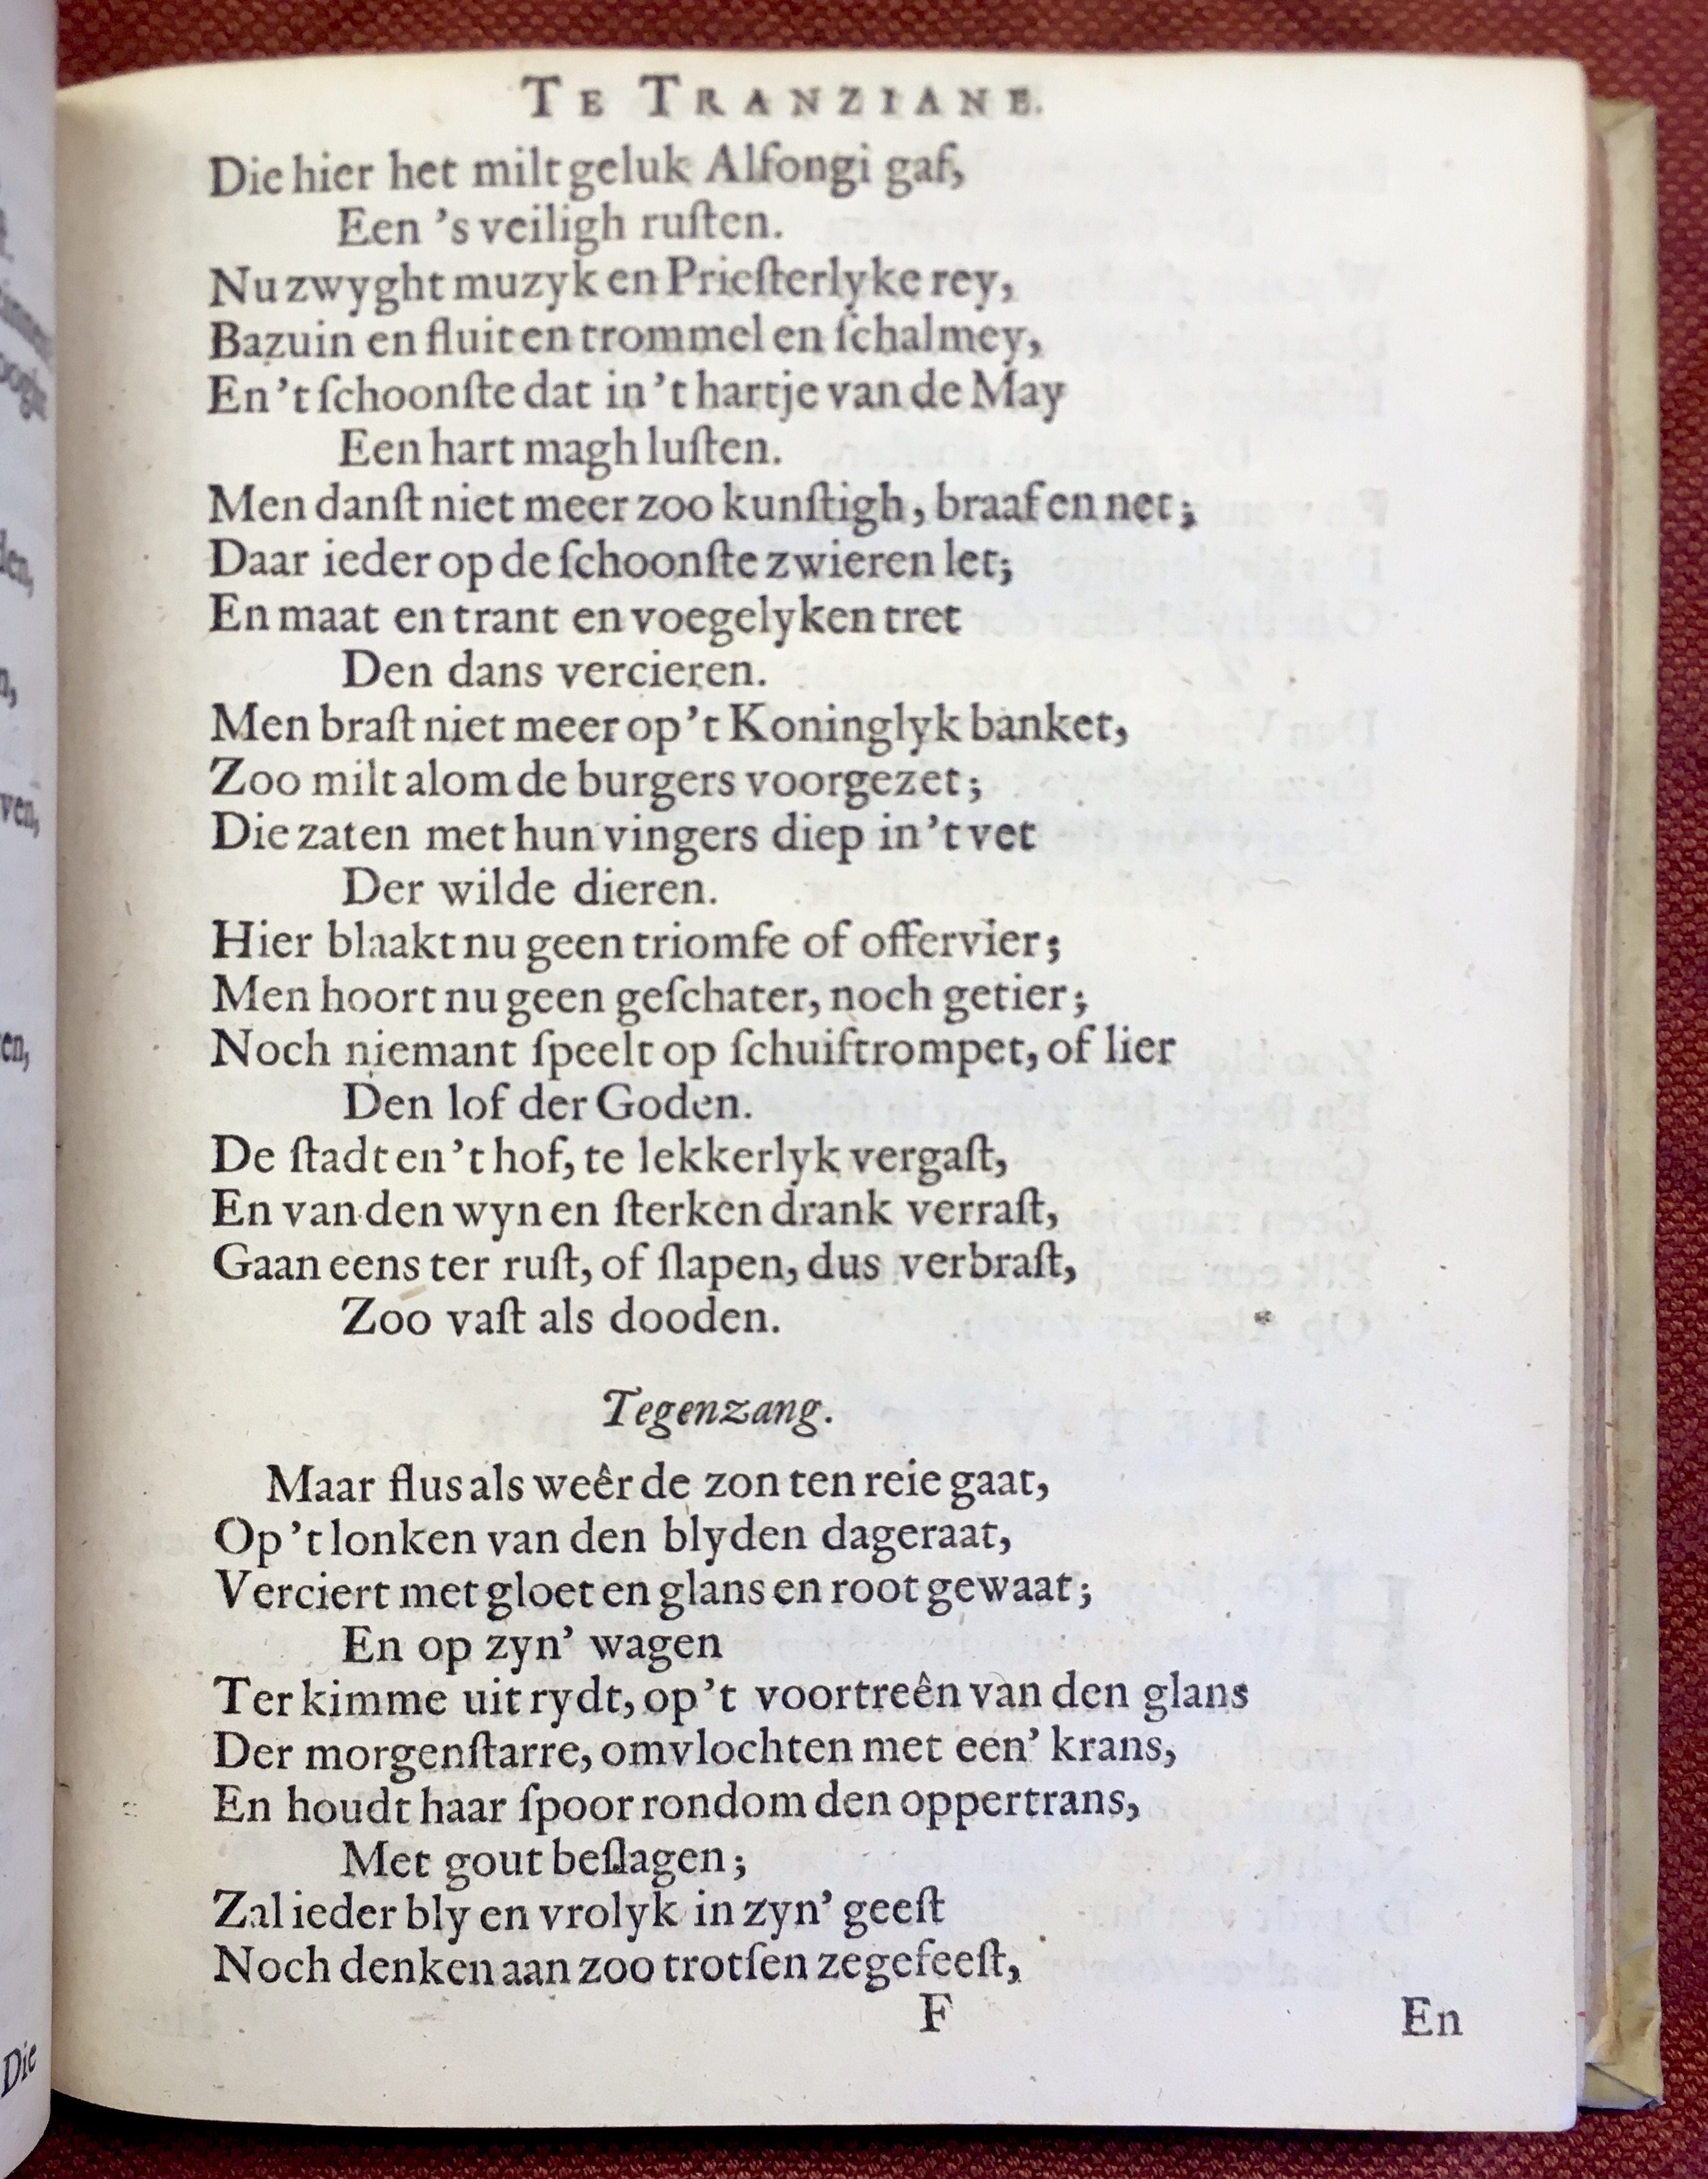 TE TRANZIANE.
Die hier het milt geluk Alfongi gaf,
Een 's veiligh ruſten.
Nu zwyght muzyk en Prieſterlyke rey,
Bazuin en fluit en trommel en ſchalmey,
En 't ſchoonſte dat in 't hartje van de May
Een hart magh luſten.
Men danſt niet meer zoo kunſtigh, braaf en net;
Daar ieder op de ſchoonſte zwieren let;
En maat en trant en voegelyken tret
Den dans vercieren.
Men braſt niet meer op 't Koninglyk banket,
Zoo milt alom de burgers voorgezet;
Die zaten met hun vingers diep in 't vet
Der wilde dieren.
Hier blaakt nu geen triomfe of offervier;
Men hoort nu geen geſchater, noch getier;
Noch niemant ſpeelt op ſchuiftrompet, of lier
Den lof der Goden.
De ſtadt en 't hof, te lekkerlyk vergaſt,
En van den wyn en ſterken drank verraſt,
Gaan eens ter ruſt, of ſlapen, dus verbraſt,
Zoo vaſt als dooden.
Tegenzang.
Maar flus als weêr de zon ten reie gaat,
Op 't lonken van den blyden dageraat,
Verciert met gloet en glans en root gewaat;
En op zyn' wagen
Ter kimme uit rydt, op 't voortreên van den glans
Der morgenſtarre, omvlochten met een' krans,
En houdt haar ſpoor rondom den oppertrans,
Met gout beſlagen;
Zal ieder bly en vrolyk in zyn' geeſt
Noch denken aan zoo trotſen zegefeeſt,
F En
Die